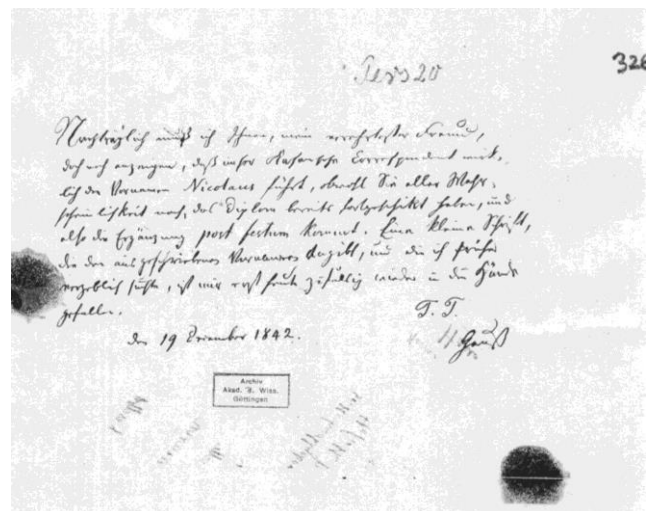 Pers 20
326
Nachträglich muß ich Ihnen, mein verehrtester Freund,
doch noch anzeigen, daß unser Kasansche Correspondent wirk-
lich den Vornamen Nicolaus führt, obwohl Sie aller Wahr-
scheinlichkeit nach, das Diplom bereits fortgeschikt haben, und
also die Ergänzung post festum kommt. Eine kleine Schrift,
die den ausgeschriebenen Vornamen angibt, und die ich früher
vergeblich suchte, ist mir erst heute zufällig wieder in die Hände
gefallen.
T. T.
den 19 December 1842.
Gauß
Archiv
Akad. d. Wiss.
Göttingen